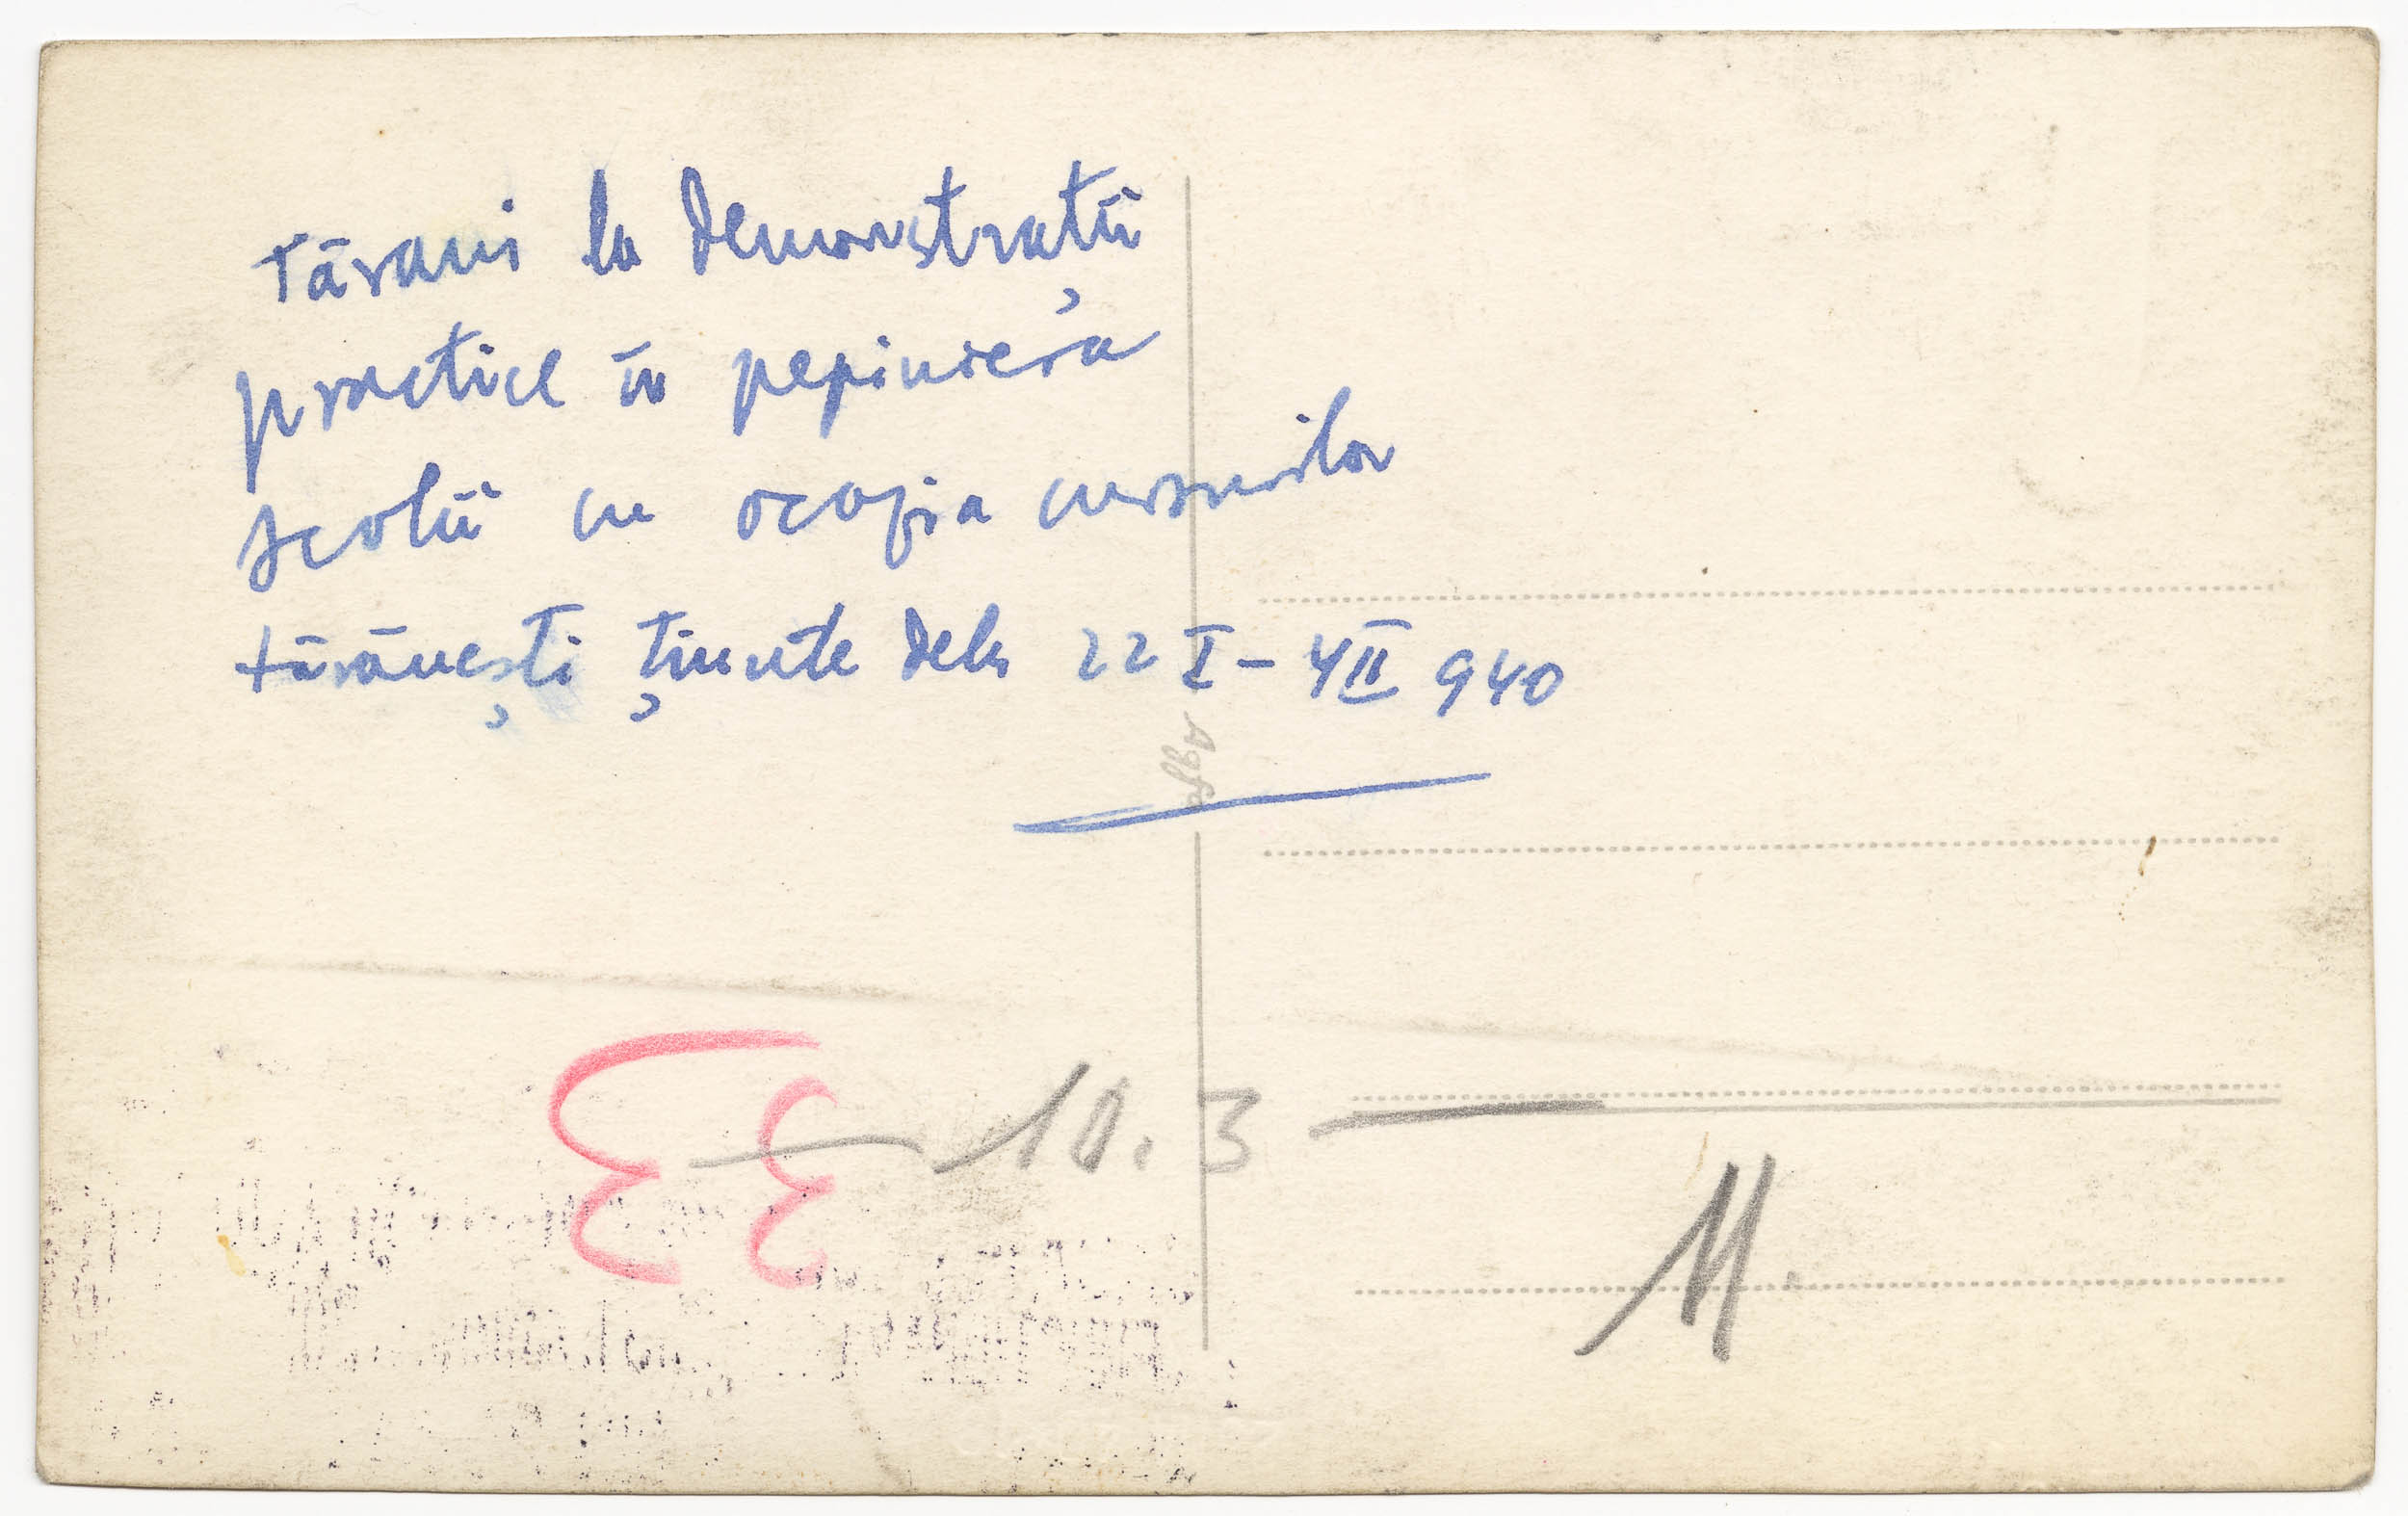 Tărani la demonstrații
practice în pepiniera
școlii cu ocazia cursurilor
tărănești ținute dela 22 I - 4 II 940
Agfa
33
10. 3
M.